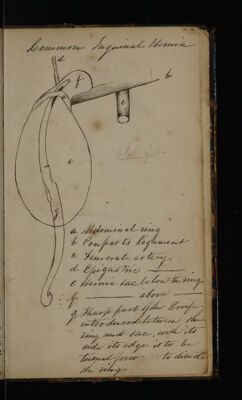 Common Inguinal Hernia
d
f
b
c
e
a Abdominal ring
b Pouparts ligament
c Femoral artery
d Epigastric ——
e Hernia sac below the ring
f ———— above ——
g Sharp part of the Knife
introduced between the
ring and sac, with its
side its edge is to be
turned forw to divide
the ring.